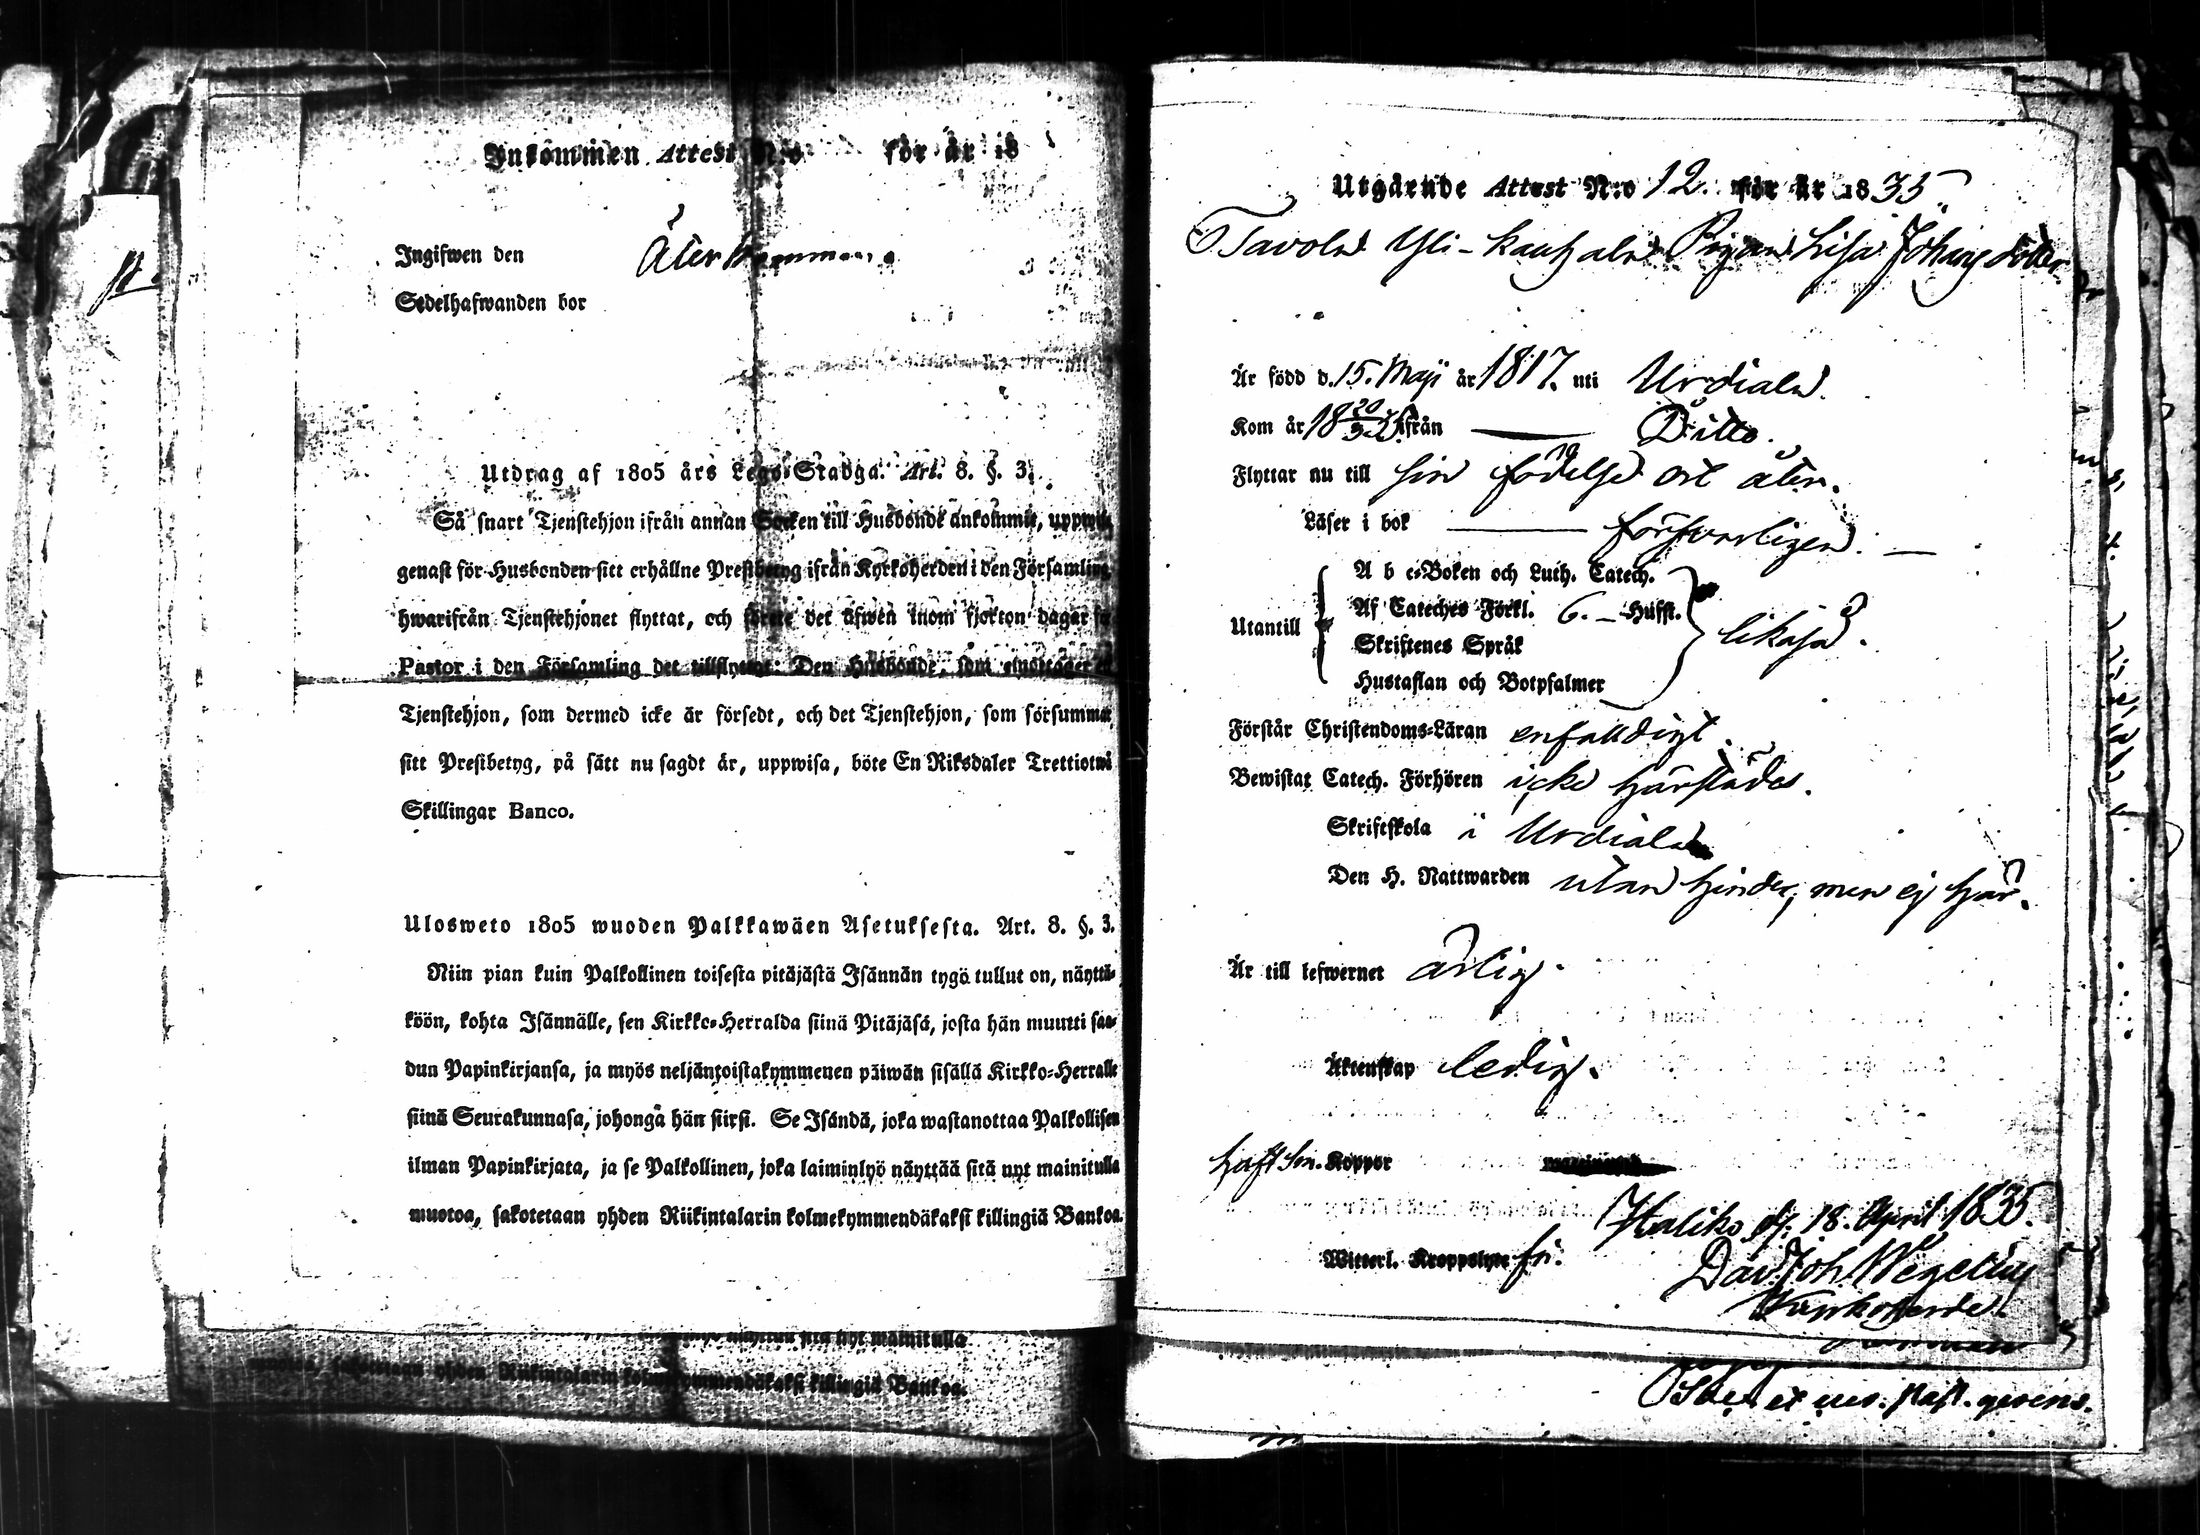 Inkommen Attest N:o för år 18
Ingifwen den Återkommen
Sedelhafwanden bor
Utdrag af 1805 års Lego-Stadga. Art. 8. §. 3.
Så snart Tjenstehjon ifrån annan Socken till Husbonde ankommit, uppwise
genast för Husbonden sitt erhållne Prestbetyg ifrån Kyrkoherden i den Församling
hwarifrån Tjenstehjonet flyttat, och förete det äfwen inom fjorton dagar för
Pastor i den Församling det tillflyttat: Den Husbonde, som emottager
Tjenstehjon, som dermed icke är försedt, och det Tjenstehjon, som försummar
sitt Prestbetyg, på sätt nu sagdt är, uppwisa, böte En Riksdaler Trettiotwå
Skillingar Banco.
Ulosweto 1805 wuoden Palkkawäen Asetuksesta. Art. 8. §. 3.
Niin pian kuin Palkollinen toisesta pitäjästä Isännän tygö tullut on, näyttä-
köön, kohta Isännälle, sen Kirkko-Herralda siinä Pitäjäsä, josta hän muutti saa-
dun Papinkirjansa, ja myös neljäntoistakymmenen päiwän sisällä Kirkko-Herralle
siinä Seurakunnasa, johonga hän siirsi. Se Isändä, joka wastanottaa Palkollisen
ilman Papinkirjata, ja se Palkollinen, joka laiminlyö näyttää sitä nyt mainitulla
muotoa, sakotetaan yhden Riikintalarin kolmekymmendäkaksi killingiä Bankoa.
näyttää sitä nyt mainitulla
muotoa, sakotetaan yhden Riikintalarin kolmekymmendäkaksi killingiä Bankoa.
Utgående Attest N:o 12. för år 1835.
Tavola Yli-kauhala Pigan Lisa Johansdotter
Är född d. 15. Maji år 1817. uti Urdiala.
Kom år 18 ifrån — Ditto.
Flyttar nu till sin födelse ort åter.
Läser i bok — försvarligen. —
A b c-Boken och Luth. Catech.
Af Cateches Förkl. 6. – Hufst.
Utantill likaså.
Skriftenes Språk
Hustaflan och Botpsalmer
Förstår Christendoms-Läran enfalldigt.
Bewistat Catech. Förhören icke härstädes.
Skriftskola i Urdiala
Den H. Nattwarden utan hinder, men ej här.
Är till lefwernet ärlig.
Äktenskap ledig.
haft Sm. Koppor
Haliko d. 18. April 1835.
Witterl. Kroppslyte fri.
Dav. Joh. Wegelius
Kyrkoherde.